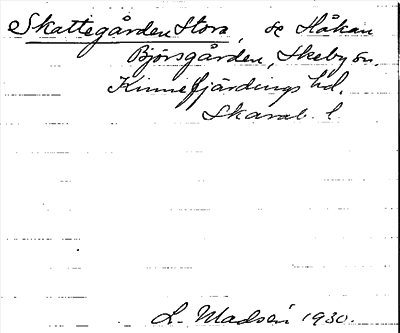 Skattegården Stora, se Håkan
Björsgården, Skeby sn.
Kinnefjärdings hd.
Skarab. l.
L. Madsén 1930.